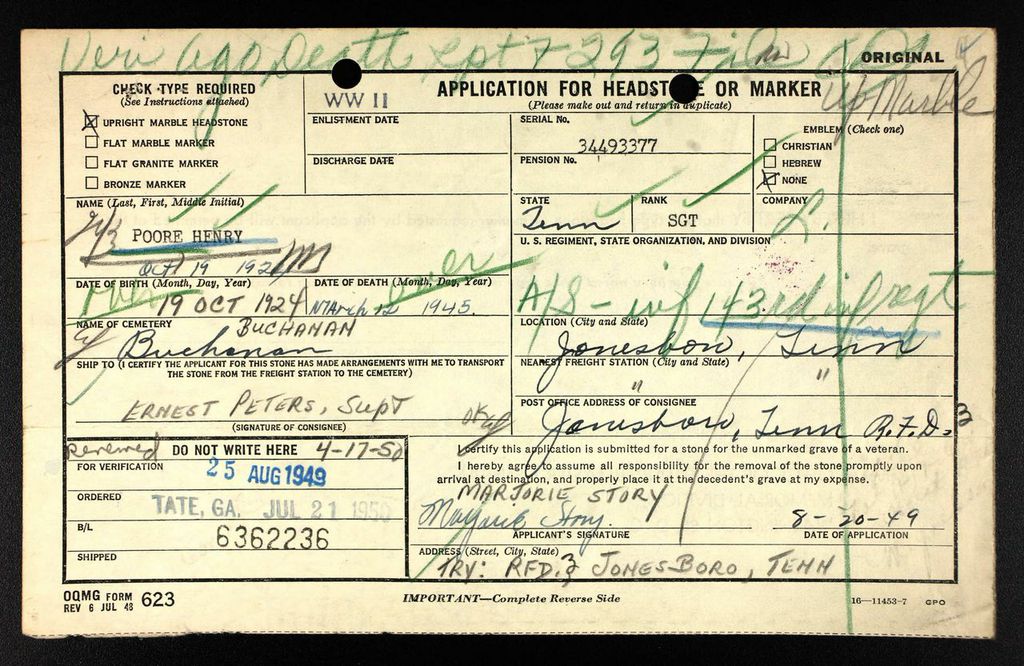 Veri ago Death Rpt 7-293 Film
ORIGINAL
Up Marble
CHECK TYPE REQUIRED
(See Instructions attached)
UPRIGHT MARBLE HEADSTONE
FLAT MARBLE MARKER
FLAT GRANITE MARKER
BRONZE MARKER
WW II
ENLISTMENT DATE
DISCHARGE DATE
APPLICATION FOR HEADSTONE OR MARKER
(Please make out and return in duplicate)
SERIAL No.
34493377
PENSION No.
EMBLEM (Check one)
CHRISTIAN
HEBREW
NONE
NAME (Last, First, Middle Initial)
POORE HENRY
STATE
Tenn
RANK
SGT
COMPANY
L.
U. S. REGIMENT, STATE ORGANIZATION, AND DIVISION
A/S - inf 143rd inf regt
Oct 19 192
DATE OF BIRTH (Month, Day, Year)
19 OCT 1924
DATE OF DEATH (Month, Day, Year)
March 1945.
NAME OF CEMETERY
BUCHANAN
Buchanan
LOCATION (City and State)
Jonesboro, Tenn
SHIP TO (I CERTIFY THE APPLICANT FOR THIS STONE HAS MADE ARRANGEMENTS WITH ME TO TRANSPORT
THE STONE FROM THE FREIGHT STATION TO THE CEMETERY)
NEAREST FREIGHT STATION (City and State)
" "
ERNEST PETERS, SUPT
(SIGNATURE OF CONSIGNEE)
OK
POST OFFICE ADDRESS OF CONSIGNEE
Jonesboro, Tenn R.F.D. 3
Reviewed DO NOT WRITE HERE 4-17-50
FOR VERIFICATION
25 AUG 1949
ORDERED
TATE, GA. JUL 21 1950
B/L
6362236
SHIPPED
I certify this application is submitted for a stone for the unmarked grave of a veteran.
I hereby agree to assume all responsibility for the removal of the stone promptly upon
arrival at destination, and properly place it at the decedent's grave at my expense.
MARJORIE STORY
Marjorie Story. 8-20-49
APPLICANT'S SIGNATURE DATE OF APPLICATION
ADDRESS (Street, City, State)
TRY: RFD. 3 JONESBORO, TENN
OQMG FORM
REV 6 JUL 48 623
IMPORTANT—Complete Reverse Side
16—11453-7 GPO